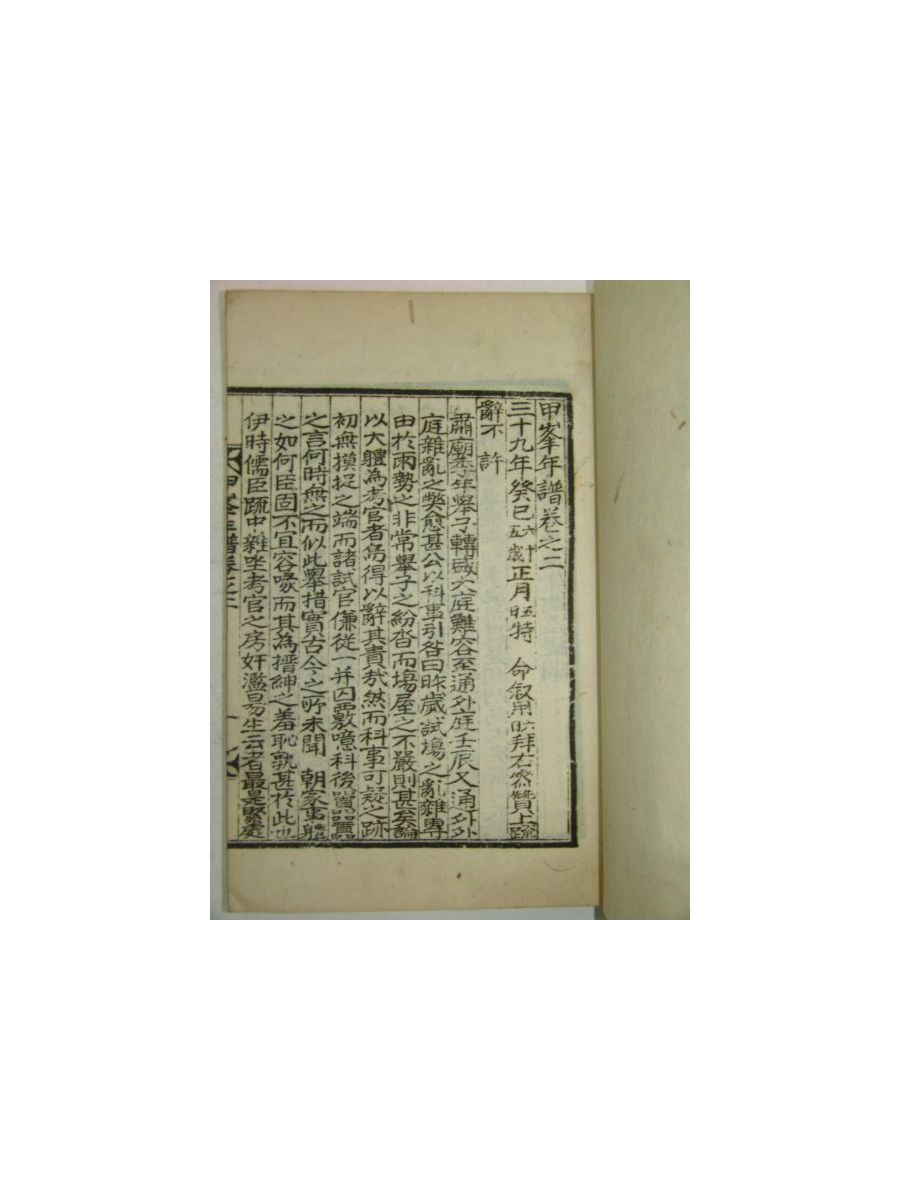 甲峯年譜卷之二
三十九年癸巳六十五歲正月五日特 命叙用 拜右叅贊上疏
辭不 許
肅廟 年舉子轉國 大庭難容至通外庭壬辰又通外外
庭雜亂之獘愈甚公以科事引咎曰昨歲試場之亂雜專
由於雨勢之非常舉子之紛沓而場屋之不嚴則甚矣論
以大軆為考官者烏得以辭其責㢤然而科事可疑之跡
初無摸捉之端而諸試官傔從一并囚覈噫科後囂囂
之言何時無之而似此舉措實古今之所未聞 朝家事軆
之如何臣固不宜容喙而其為搢紳之羞恥孰甚於此也
伊時儒臣疏中雜坐考官之房奸濫易生云者最是緊處